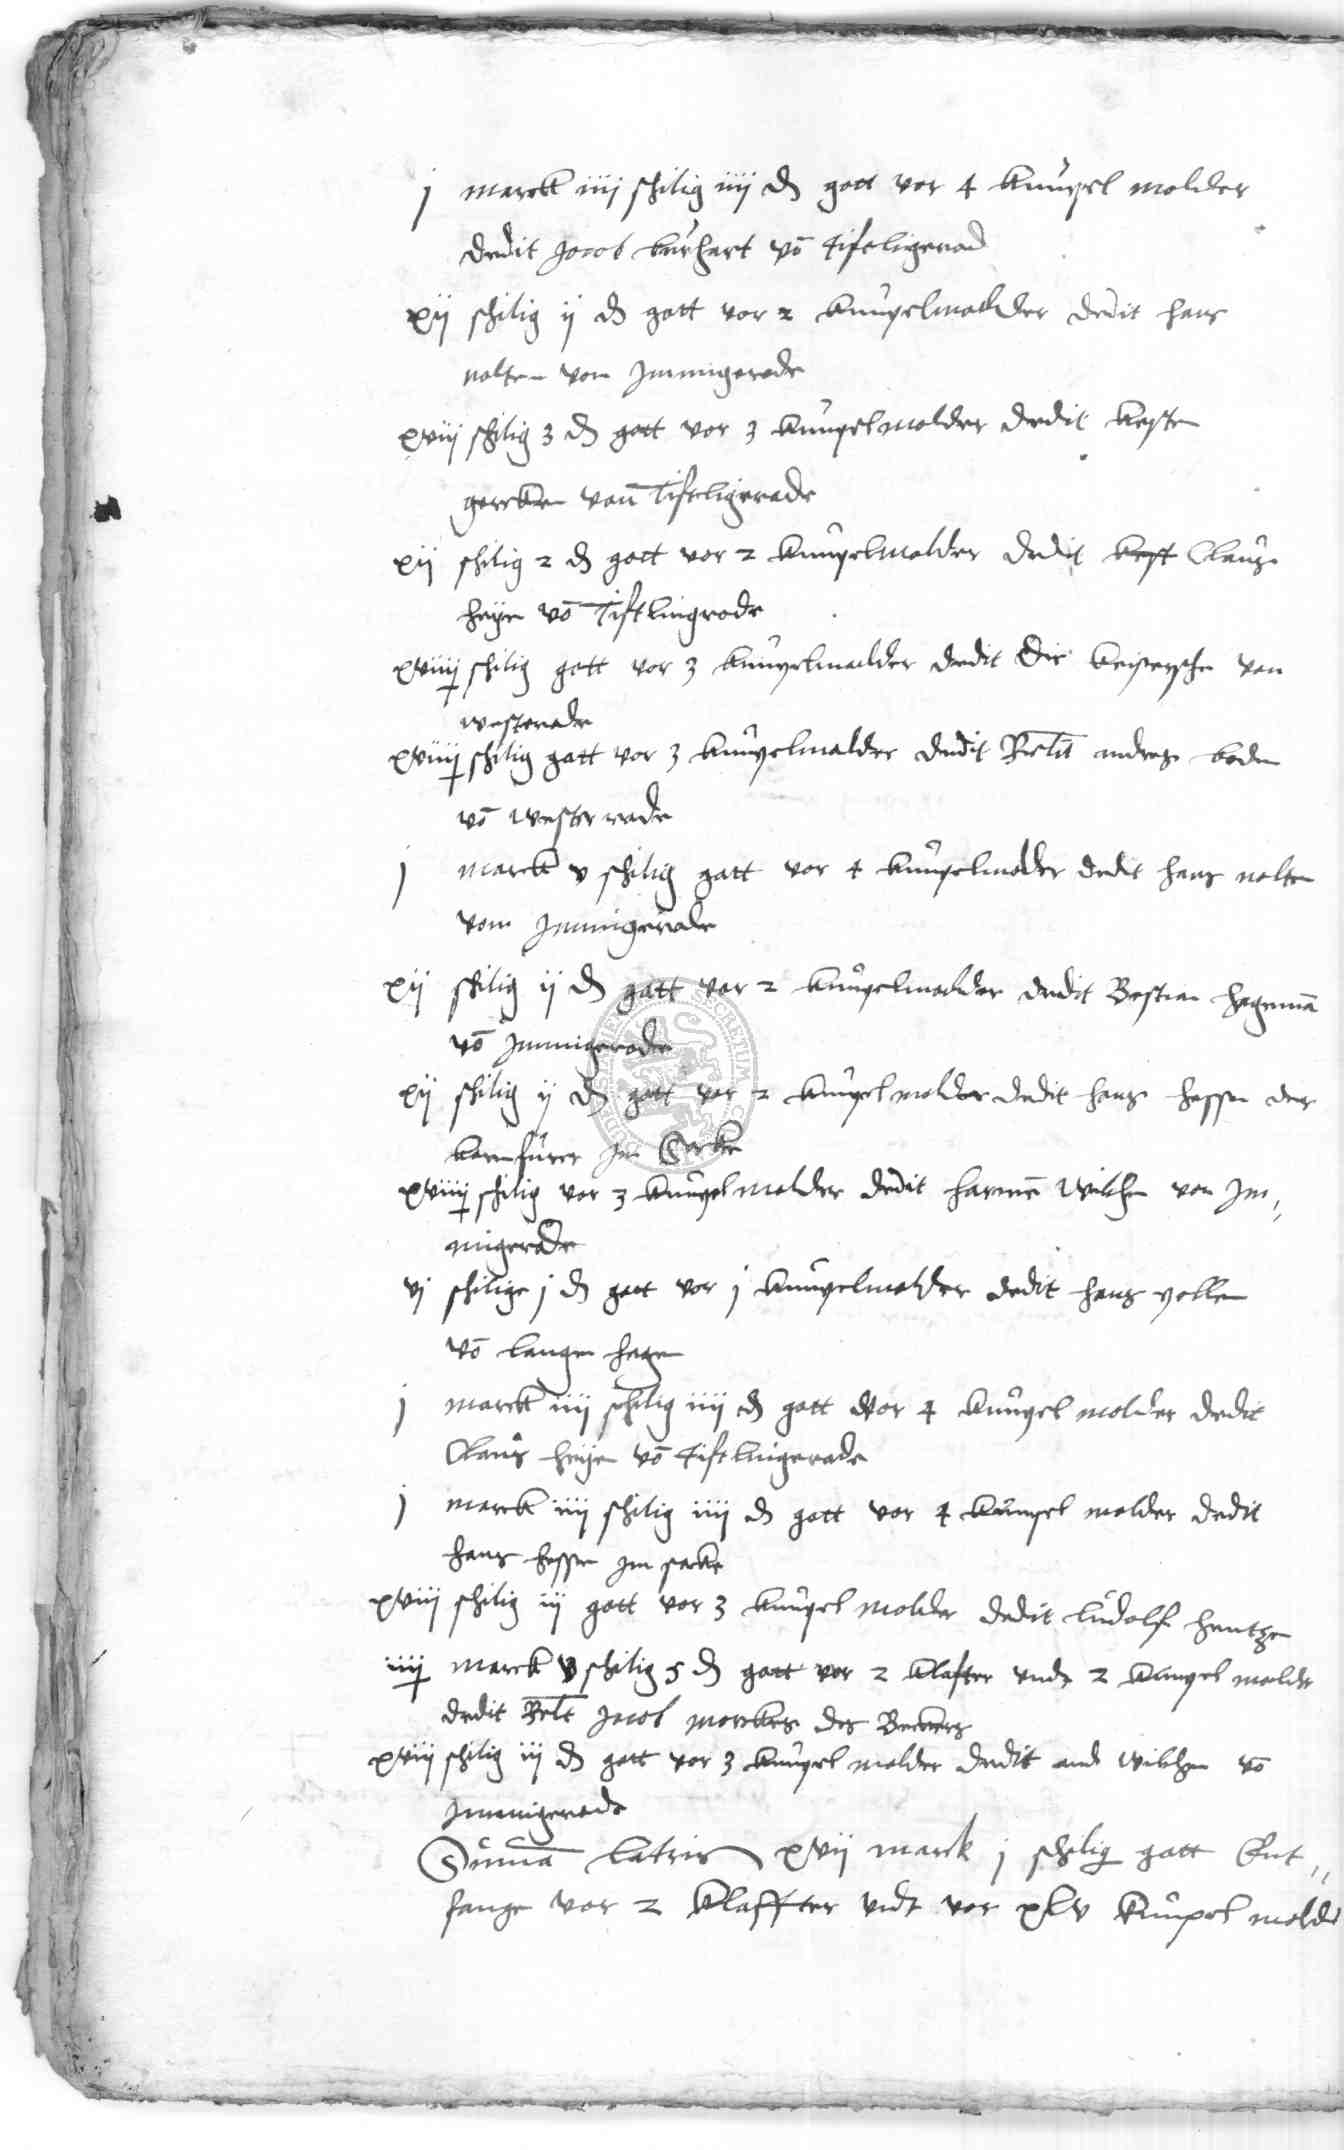 j marck iiij schilig iiij d gott vor 4 knuppel molder
dedit Jacob burhart vo Tiftligerod
xij schilig ij d gott vor 2 knuppelmolder dedit hans
nolten von Jmmigerode
xviij schilig 3 d gott vor 3 knuppelmolder dedit
gercken von Tiftligerade
xij schilig 2 d gott vor 2 knuppelmolder dedit Claus
heyse vo Tiftlingrode
xviiij schilig gott vor 3 knuppelmolder dedit Die von
westerade
xviiij schilig gott vor 3 knuppelmolder dedit Relt andres boden
vo westerrode
j marck v schilig gott vor 4 knuppelmolder dedit hans nolten
vom Jmmigerode
xij schilig ij d gott vor 2 knuppelmolder dedit Bostian hagema
vo Jmmigerode
xij schilig ij d gott vor 2 knuppel molder dedit hans hessen der
kornfurer Jm
xviiij schilig vor 3 knuppel molder dedit harme wilch von Jm
migerode
vj schilige j d gott vor j knuppelmolder dedit hans
vo langen hagen
j marck iiij schilig iiij d gott vor 4 knuppel molder dedit
Claus heyse vo Tiftlingerode
j marck iiij schilig iiij d gott vor 4 knuppel molder dedit
hans hessen Jm sacke
xviij schilig iij gott vor 3 knuppel molder dedit ludolf hentze
iiij marck v schilig 5 d gott vor 2 klafter vnde 2 knuppel molde
dedit Relt Jacob
xviij schilig iij d gott vor 3 knuppel molder dedit and wilchen vo
Jmmigerode
Suma lateris xvij marck j schilig gott Ent
fange vor 2 klaffter vndt vor xlv knuppel molde
SECRETUM